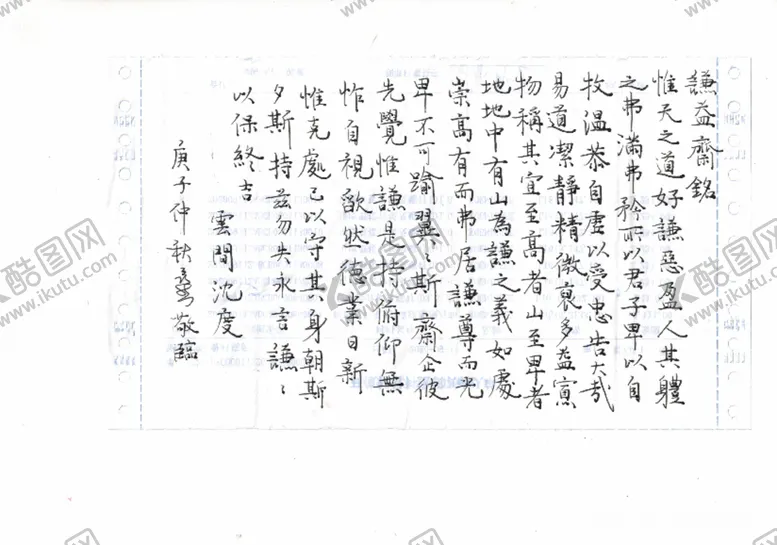 謙益齋銘
惟天之道好謙惡盈人其體
之弗滿弗矜所以君子卑以自
牧溫恭自虛以受忠告大哉
易道潔靜精微裒多益寡
物稱其宜至高者山至卑者
地地中有山為謙之義如處
崇高有而弗居謙尊而光
卑不可踰翼〻斯齋企彼
先覺惟謙是持俯仰無
怍自視歉然德業日新
惟克處己以守其身朝斯
夕斯持茲勿失永言謙〻
以保終吉 雲間沈度
庚子仲秋 敬臨
酷图网
www.ikutu.com